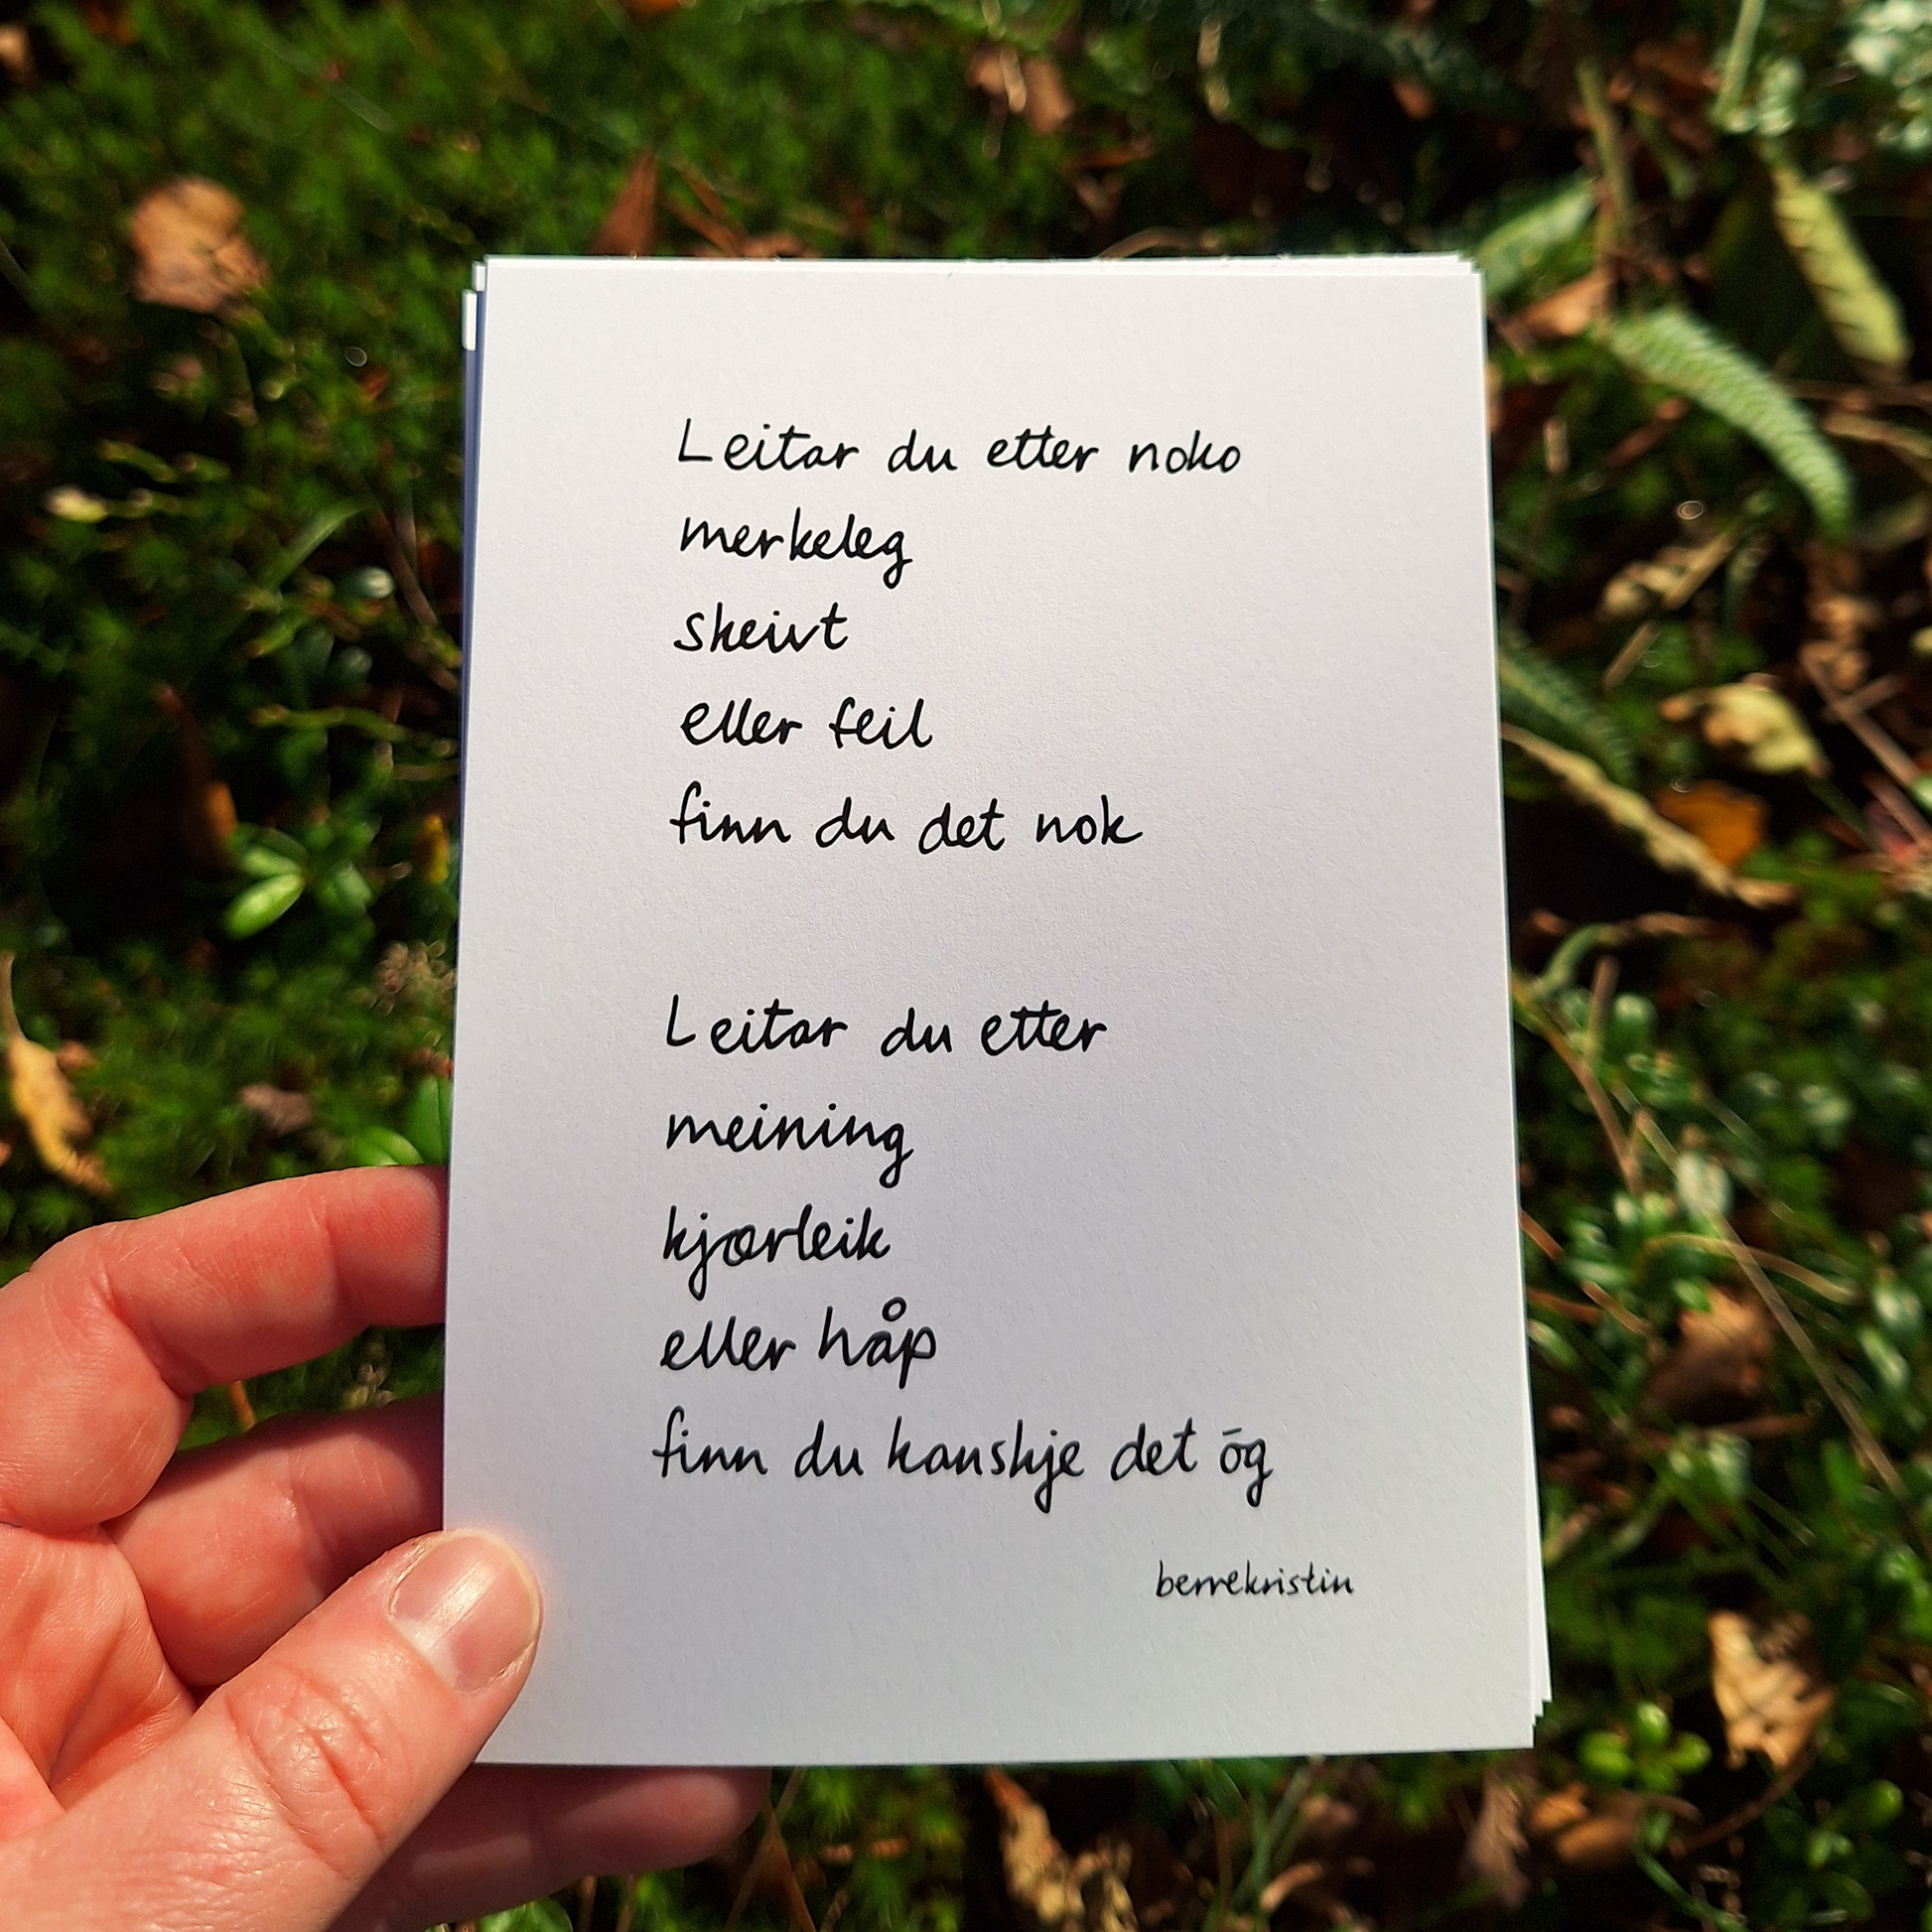 Leitar du etter noko
merkeleg
skeivt
eller feil
finn du det nok
Leitar du etter
meining
kjærleik
eller håp
finn du kanskje det ōg
berrekristin